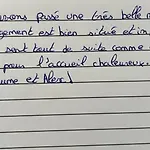 avons passé une très belle
gement est bien situé et im
sent tout de suite comme
pour l'accueil chaleureux.
ume et Alex!